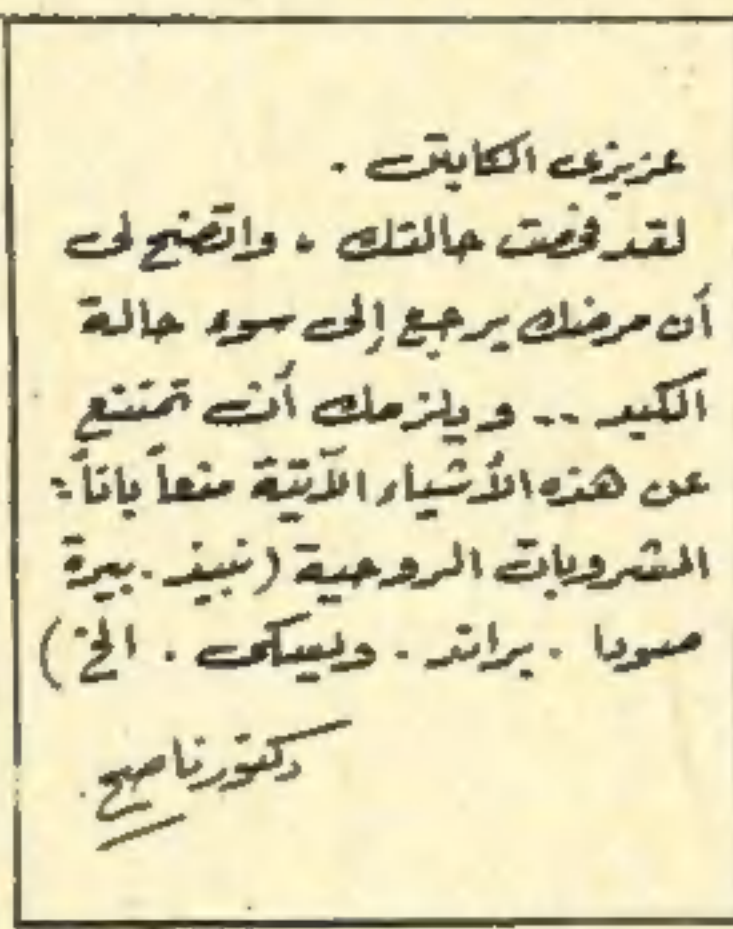 عزيزى الكابتن .
لقد فحصت حالتك ، واتضح لى
أن مرضك يرجع إلى سوء حالة
الكبد .. ويلزمك أن تمتنع
عن هذه الأشياء الآتية منعاً باتاً :
المشروبات الروحية ( نبيذ . بيرة
صودا . براند . ويسكى . الخ )
دكتور ناصح .